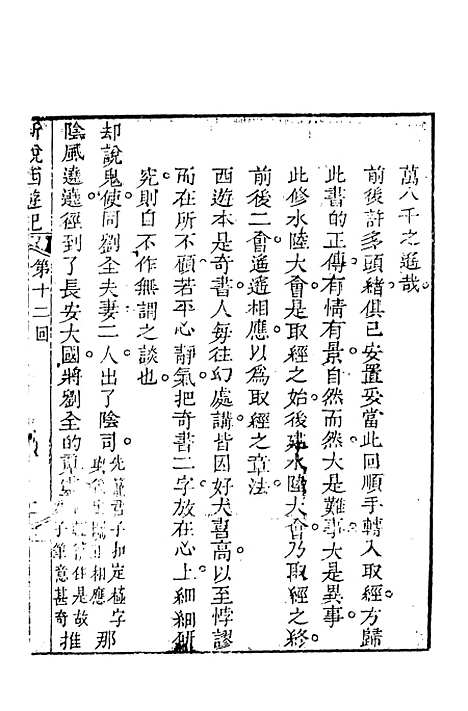 萬八千之遙哉。
前後許多頭緒俱已安置妥當此回順手轉入取經方歸
此書的正傳有情有景自然而然大是難事大是異事。
此修水陸大會是取經之始後建水陸大會乃取經之終。
前後二會遙遙相應以爲取經之章法。
西遊本是奇書人每往幻處講皆因好大喜高以至悖謬
而在所不顧若平心靜氣把奇書二字放在心上細細研
究則自不作無謂之談也。
却說鬼使同劉全夫妻二人出了陰司。
那
陰風遶遶徑到了長安大國將劉全的
推
新說西遊記
第十二回